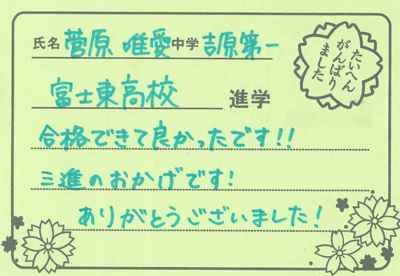 氏名 菅原 唯愛 中学 吉原第一
富士東高校 進学
合格できて良かったです!!
三進のおかげです!
ありがとうございました!
たいへん
がんばり
ました